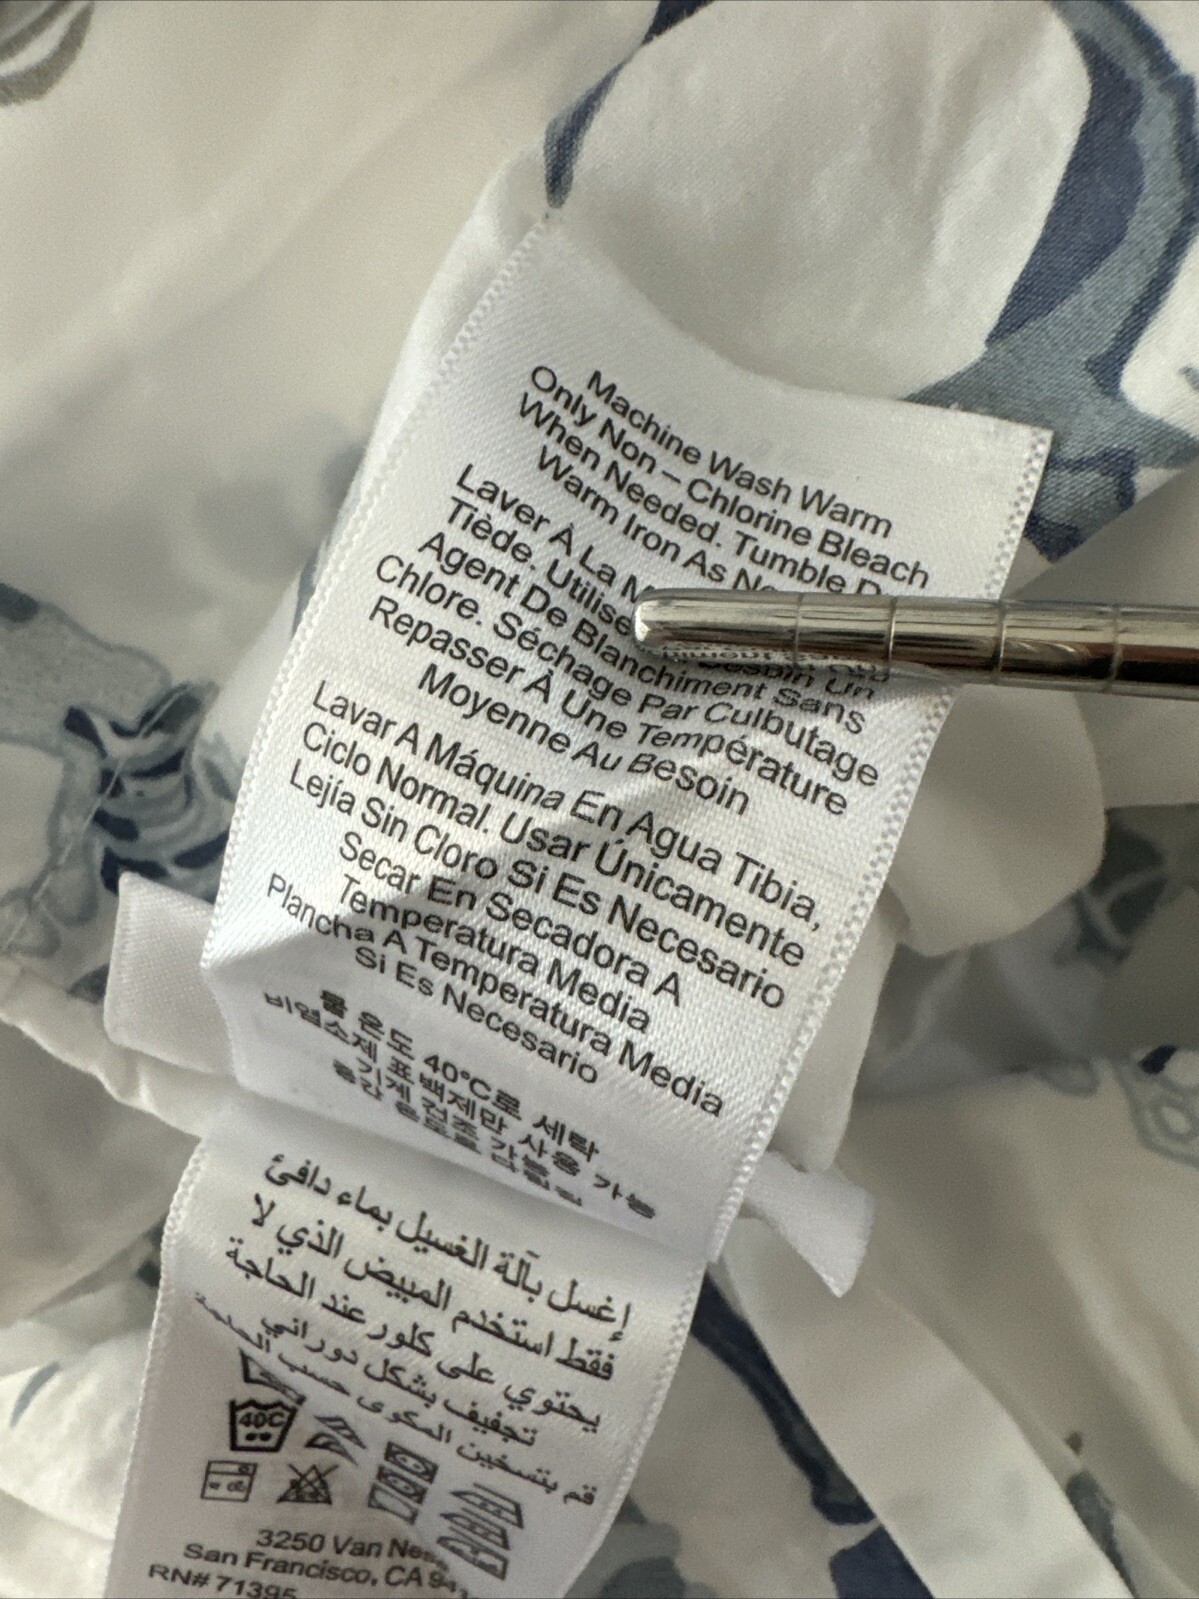 Machine Wash Warm
Only Non – Chlorine Bleach
When Needed. Tumble
Warm Iron As
Laver À La
Tiède. Utilise
Besoin Un
Agent De Blanchiment Sans
Chlore. Séchage Par Culbutage
Repasser À Une Température
Moyenne Au Besoin
Lavar A Máquina En Agua Tibia,
Ciclo Normal. Usar Únicamente
Lejía Sin Cloro Si Es Necesario
Secar En Secadora A
Temperatura Media
Plancha A Temperatura Media
Si Es Necesario
물 온도 40°C로 세탁
비염소제 표백제만 사용 가능
기계 건조 가능
إغسل بآلة الغسيل بماء دافئ
فقط استخدم المبيض الذي لا
يحتوي على كلور عند الحاجة
تجفيف بشكل دوراني
قم بتسخين المكوى حسب
40C
3250 Van
San Francisco, CA
RN# 71395